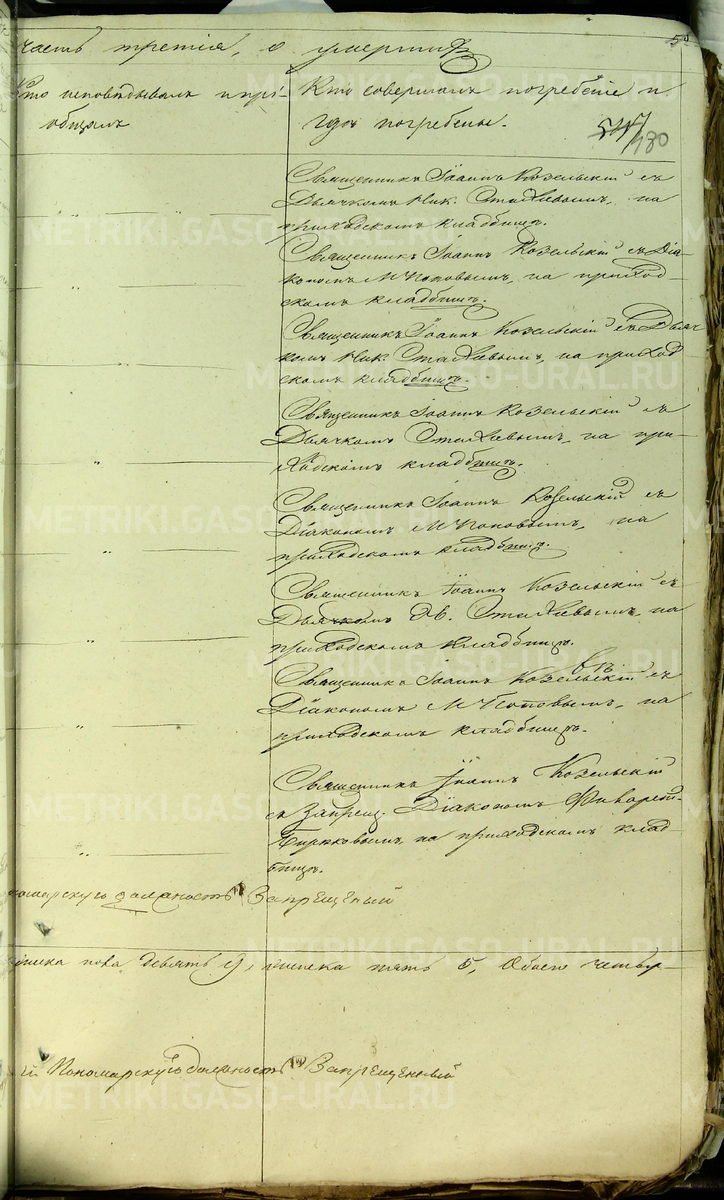 часть третія, о умершихъ
Кто исповѣдывалъ и прі-
общалъ
Кто совершалъ погребеніе и
гдѣ погребены.
547
180
Священникъ Іоаннъ Козельскій съ
Дьячкомъ Ник. Стахіевымъ, на
приходскомъ кладбищѣ.
Священникъ Іоаннъ Козельскій съ Діа-
кономъ М Поповымъ, на приход-
скомъ кладбищѣ.
Священникъ Іоаннъ Козельскій съ Дьяч
комъ Ник. Стахіевымъ, на приход
скомъ кладбищѣ.
Священникъ Іоаннъ Козельскій съ
Дьячкомъ Стахіевымъ, на при-
ходскомъ кладбищѣ.
Священникъ Іоаннъ Козельскій съ
Діакономъ М Поповымъ, на
приходскомъ кладбищѣ.
Священникъ Іоаннъ Козельскій съ
Дьячкомъ Стахіевымъ, на
приходскомъ кладбищѣ.
Священникъ Іоаннъ Козельскій съ
Діакономъ М Поповымъ, на
приходскомъ кладбищѣ.
Священникъ Іоаннъ Козельскій
съ Запрещ. Діакономъ
Бирюковымъ на приходскомъ клад-
бищѣ.
номарскую должность Запрещеный
пола девять 9, женска пять 5, Обоего четыр-
Пономарскую должность Запрещеный
METRIKI.GASO-URAL.RU